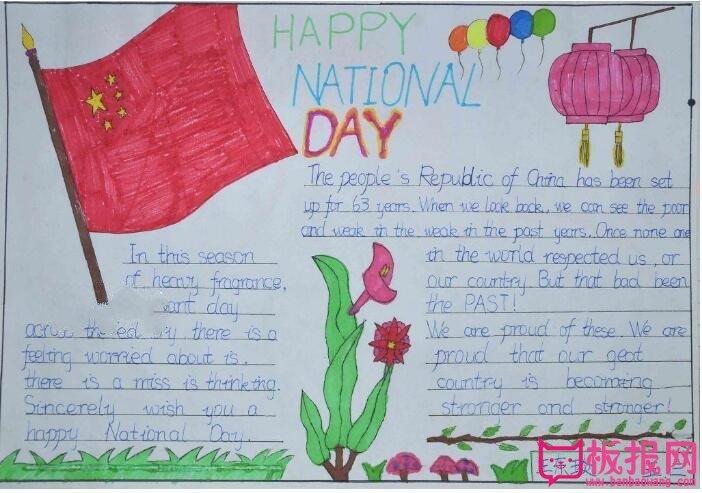 HAPPY
NATIONAL
DAY
The people's Republic of China has been set
up for 63 years. When we look back, we can see the poor
and weak in the weak in the past years. Once none one
in the world respected us, or
our country. But that bad been
the PAST!
We are proud of these. We are
proud that our geat
country is becoming
stronger and stronger!
In this season
of heavy fragrance,
day
there is a
feeling worried about is.
there is a miss is thinking.
Sincerely wish you a
happy National Day.
板报网
www.banbaowang.com